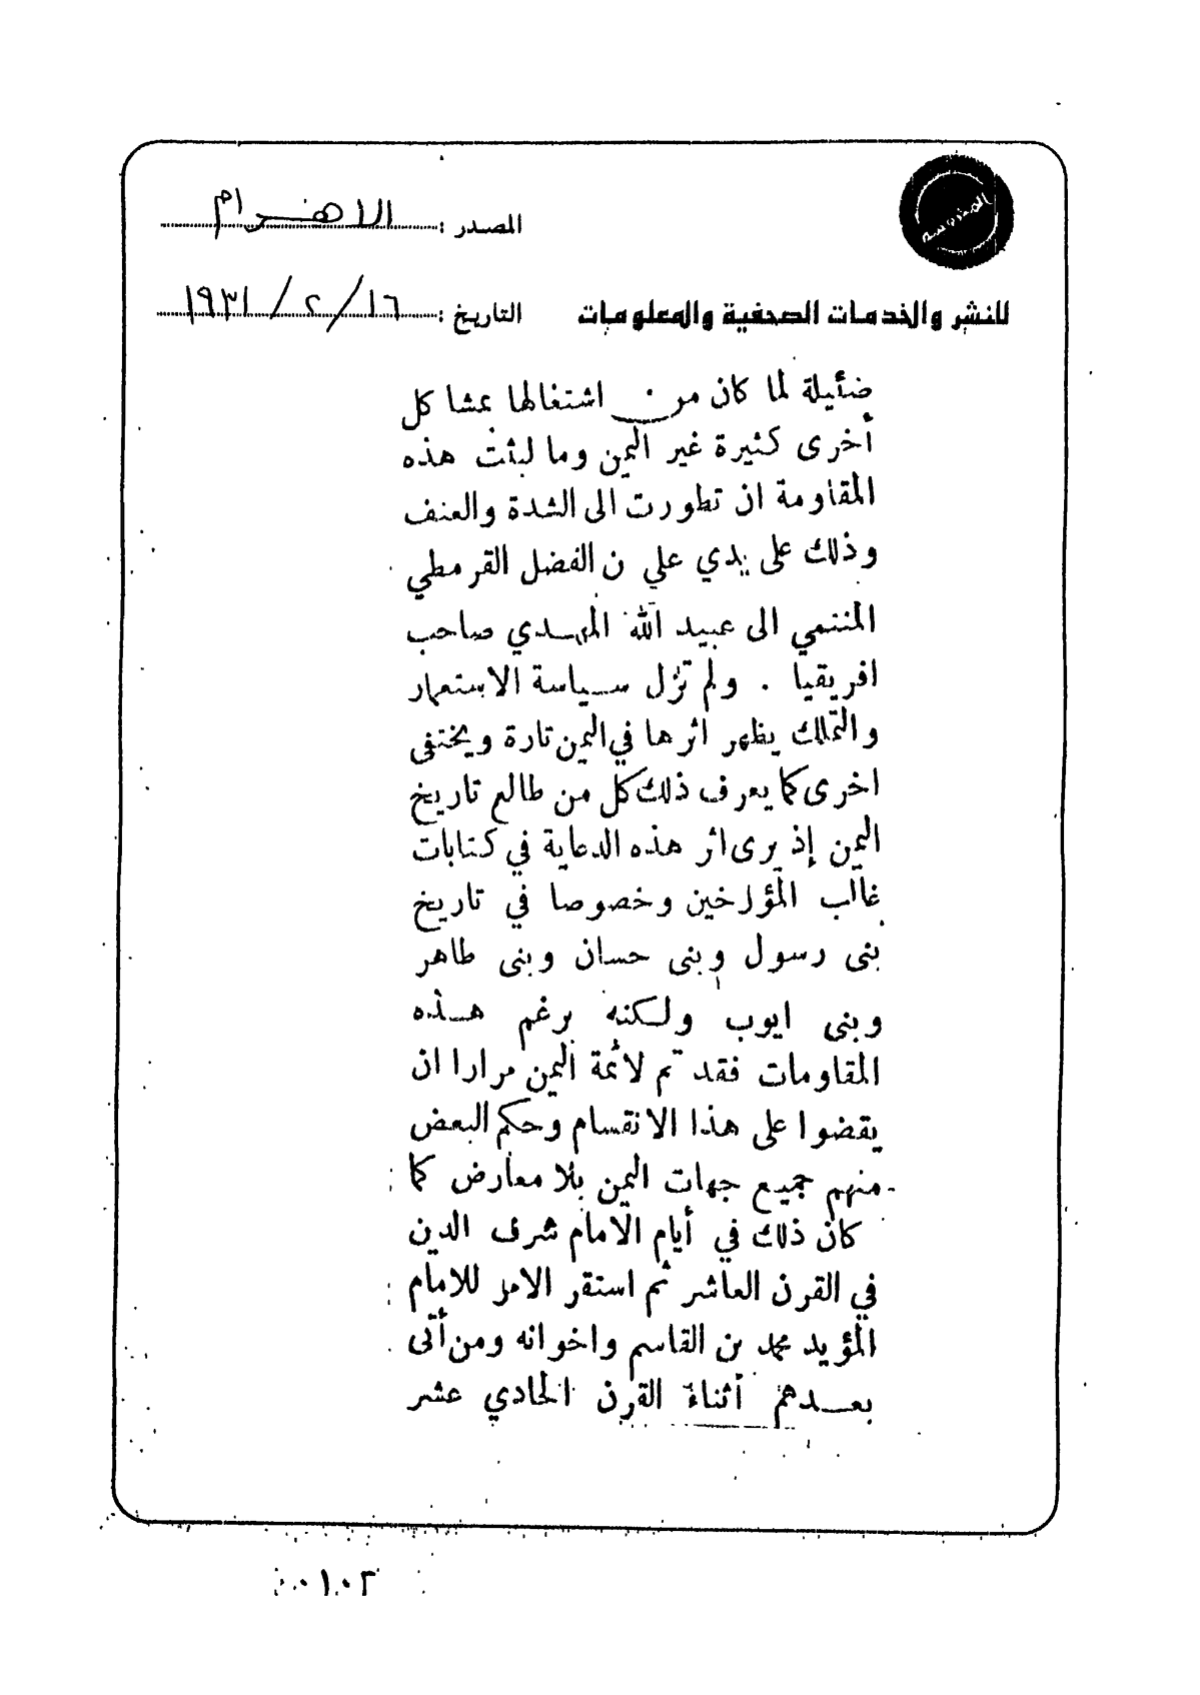 المصدر : الاهرام
للنشر والخدمات الصحفية والمعلومات
التاريخ : ١٦ / ٢ / ١٩٣١
ضئيلة لما كان من اشتغالها بمشاكل
أخرى كثيرة غير اليمن وما لبثت هذه
المقاومة ان تطورت الى الشدة والعنف
وذلك على يدي علي ن الفضل القرمطي
المنتمي الى عبيد الله المهدي صاحب
افريقيا . ولم تزل سياسة الاستعمار
والتملك يظهر اثرها في اليمن تارة ويختفى
اخرى كما يعرف ذلك كل من طالع تاريخ
اليمن إذ يرى اثر هذه الدعاية في كتابات
غالب المؤرخين وخصوصا في تاريخ
بنى رسول وبنى حسان وبنى طاهر
وبنى ايوب ولكنه برغم هذه
المقاومات فقد تم لائمة اليمن مرارا ان
يقضوا على هذا الانقسام وحكم البعض
منهم جميع جهات اليمن بلا معارض كما
كان ذلك في أيام الامام شرف الدين
في القرن العاشر ثم استقر الامر للامام
المؤيد محمد بن القاسم واخوانه ومن أتى
بعدهم أثناء القرن الحادي عشر